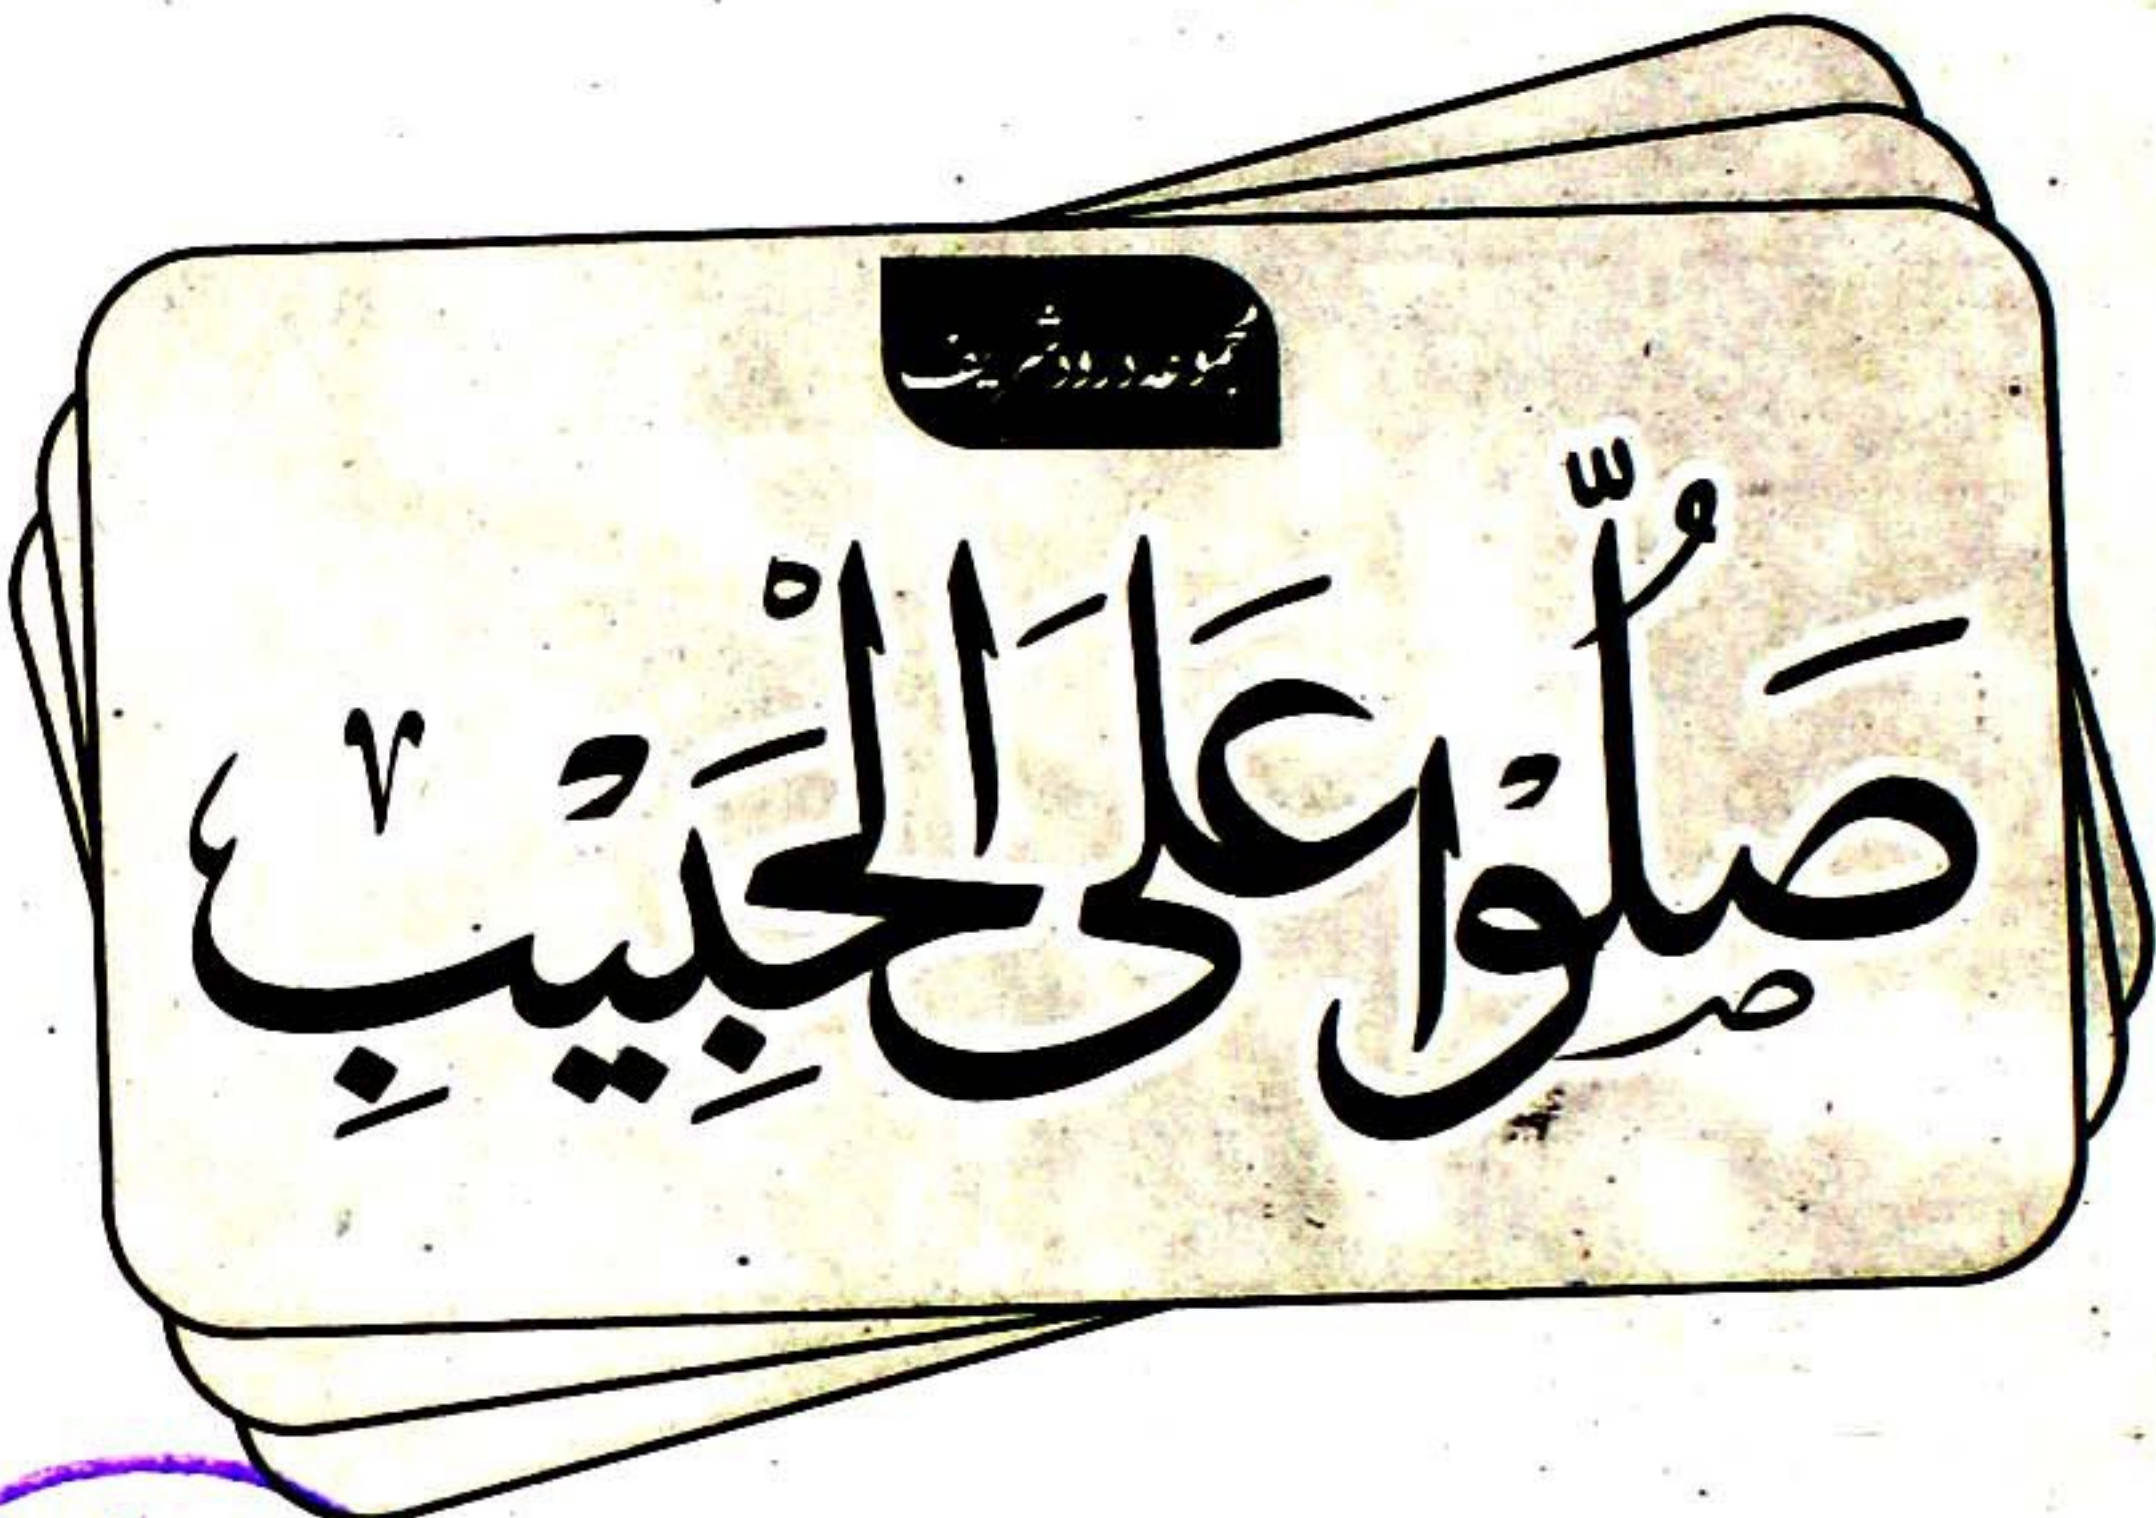 مجموعہ درود شریف
صَلُّوْا عَلَى الْحَبِيْبِ